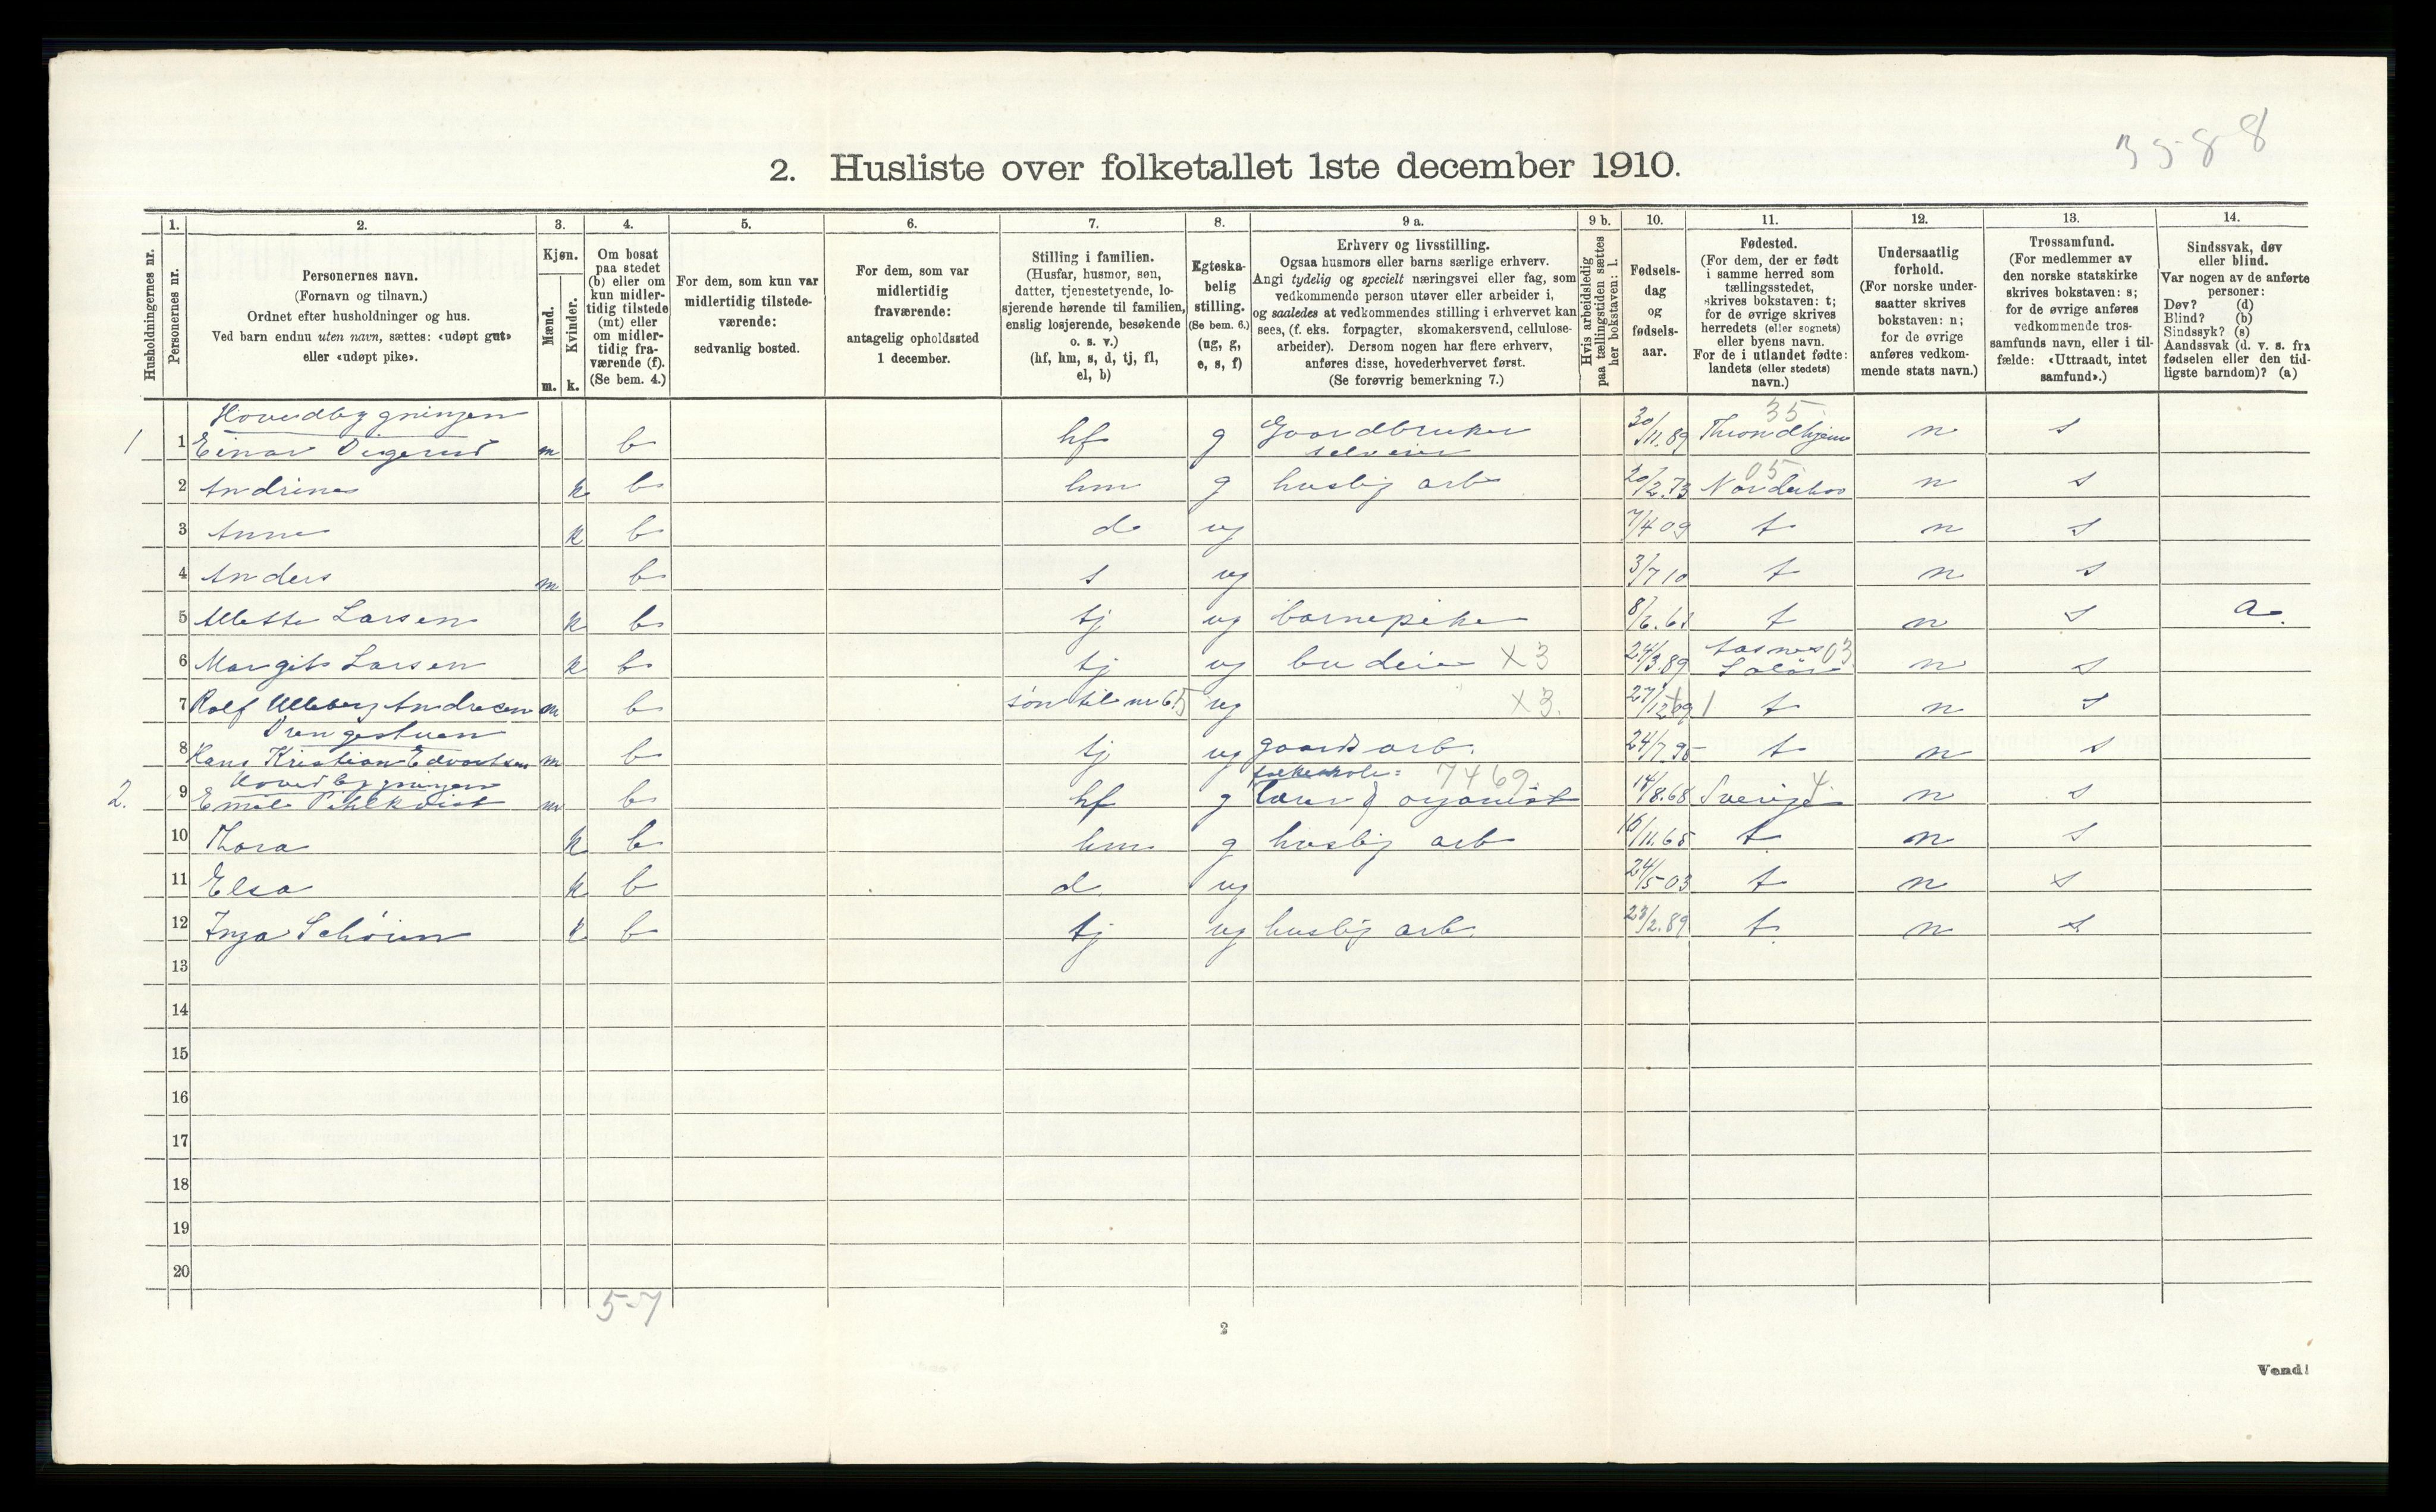 3588
2. Husliste over folketallet 1ste december 1910.
Husholdningernes nr.
1. Personernes nr.
2. Personernes navn. (Fornavn og tilnavn.) Ordnet efter husholdninger og hus. Ved barn endnu uten navn, sættes: «udøpt gut» eller «udøpt pike».
3. Kjøn. Mænd. m. Kvinder. k.
4. Om bosat paa stedet (b) eller om kun midlertidig tilstede (mt) eller om midlertidig fraværende (f). (Se bem. 4.)
5. For dem, som kun var midlertidig tilstedeværende: sedvanlig bosted.
6. For dem, som var midlertidig fraværende: antagelig opholdssted 1 december.
7. Stilling i familien. (Husfar, husmor, søn, datter, tjenestetyende, losjerende hørende til familien, enslig losjerende, besøkende o. s. v.) (hf, hm, s, d, tj, fl, el, b)
8. Egteskabelig stilling. (Se bem. 6.) (ug, g, e, s, f)
9 a. Erhverv og livsstilling. Ogsaa husmors eller barns særlige erhverv. Angi tydelig og specielt næringsvei eller fag, som vedkommende person utøver eller arbeider i, og saaledes at vedkommendes stilling i erhvervet kan sees, (f. eks. forpagter, skomakersvend, cellulose-arbeider). Dersom nogen har flere erhverv, anføres disse, hovederhvervet først. (Se forøvrig bemerkning 7.)
9 b. Hvis arbeidsledig paa tællingstiden sættes her bokstaven: l.
10. Fødselsdag og fødselsaar.
11. Fødested. (For dem, der er født i samme herred som tællingsstedet, skrives bokstaven: t; for de øvrige skrives herredets (eller sognets) eller byens navn. For de i utlandet fødte: landets (eller stedets) navn.)
12. Undersaatlig forhold. (For norske undersaatter skrives bokstaven: n; for de øvrige anføres vedkommende stats navn.)
13. Trossamfund. (For medlemmer av den norske statskirke skrives bokstaven: s; for de øvrige anføres vedkommende trossamfunds navn, eller i tilfælde: «Uttraadt, intet samfund».)
14. Sindssvak, døv eller blind. Var nogen av de anførte personer: Døv? (d) Blind? (b) Sindssyk? (s) Aandssvak (d. v. s. fra fødselen eller den tidligste barndom)? (a)
Hovedbygningen 35
1 1 Einar m b hf g Gaardbruker selveier 30/11.89 Throndhjem n s
2 Andrine k b hm g huslig arb 20/2.73 Norderhov 05 n s
3 Anne k b d ug 7/4 09 t n s
4 Anders m b s ug 3/7 10 t n s
5 Mette Larsen k b tj ug barnepike t n s a.
6 Margit Larsen k b tj ug budeie X3 24/3.89 Aasnes Solør 03 n s
7 Rolf Ulleberg Andresen m b søn til nr 6 5 ug X3. t n s
Drengestuen
8 Hans Kristian Edvartsen m b tj ug gaards arb. 24/7.95 t n s
Hovedbygningen folkeskole= 7469.
2. 9 Emil Pihlkvist m b hf g lærer & organist 14/8.68 Sverige 4 n s
10 Thora k b hm g huslig arb 16/11.65 t n s
11 Elsa k b d ug 24/5-03 t n s
12 Inga Schøien k b tj ug huslig arb. 23/2.89 t n s
13
14
15
16
17
18
19
20
5-7
2
Vend!